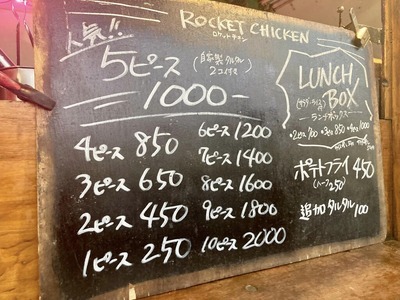 ROCKET CHICKEN
ロケットチキン
人気!!
5ピース (自家製タルタル
2コ付き)
1000-
4ピース 850
3ピース 650
2ピース 450
1ピース 250
6ピース 1200
7ピース 1400
8ピース 1600
9ピース 1800
10ピース 2000
LUNCH
BOX
ランチボックス
・2ピース 700 ・3ピース 850 ・4ピース 1000
ポテトフライ 450
(ハーフ 250)
追加タルタル 100